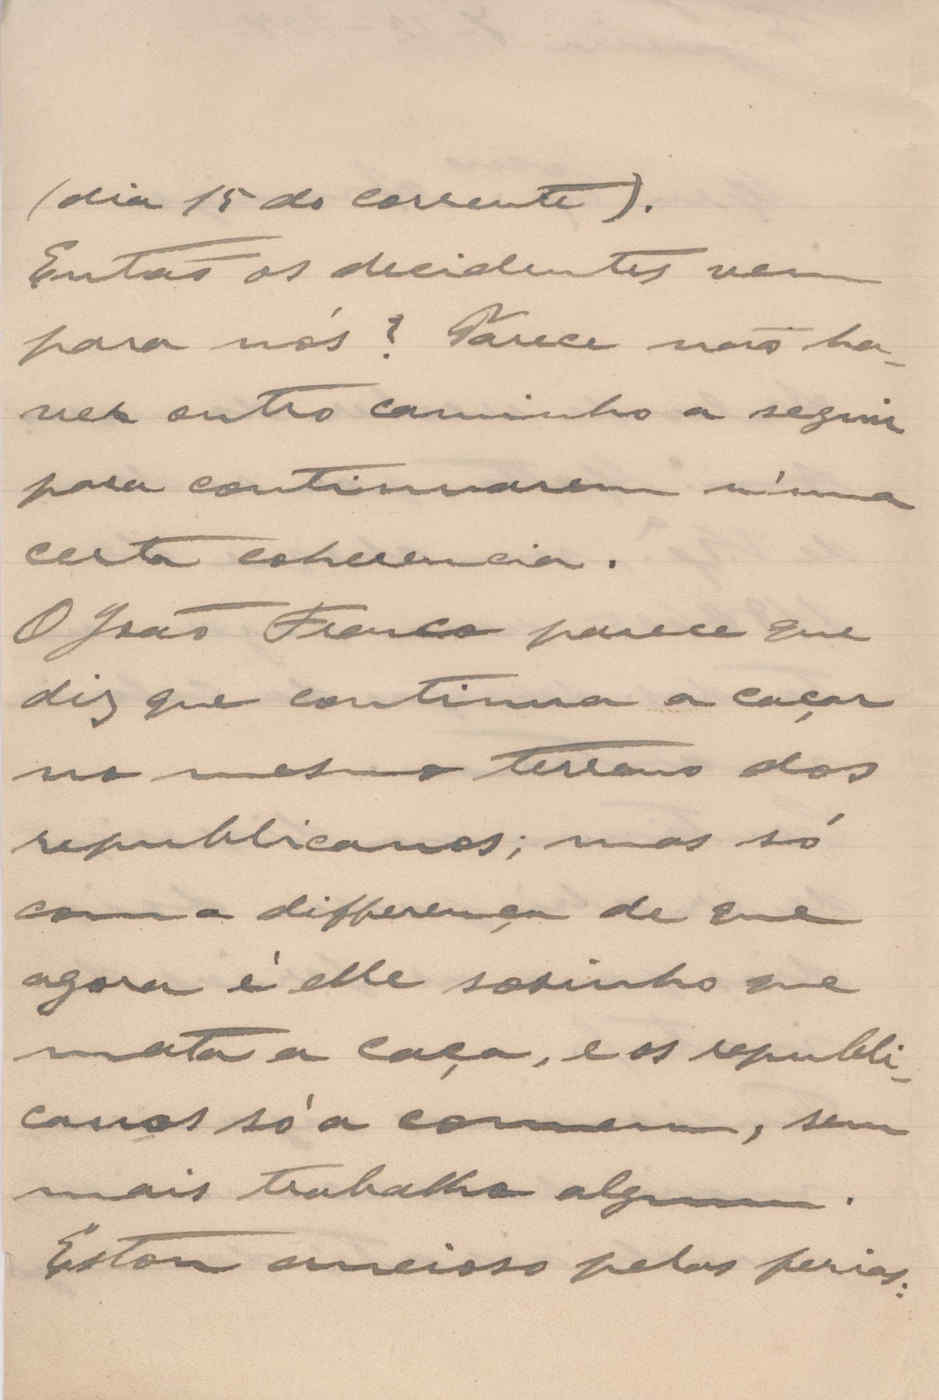 (dia 15 do corrente).
Então os decidentes vem
para nós? Parece não ha-
ver outro caminho a seguir
para continuarem n'uma
certa coherencia.
O João Franco parece que
diz que continua a caçar
no mesmo terreno dos
republicanos; mas só
com a differença de que
agora é elle sosinho que
mata a caça, e os republi-
canos só a comem, sem
mais trabalho algum.
Estou anceioso pelas ferias: